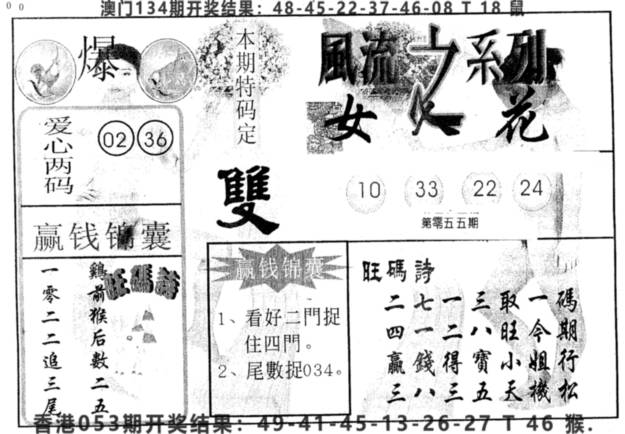 澳门134期开奖结果：48-45-22-37-46-08 T 18 鼠
爆
本期特码定
雙
風流之系列
女人花
10 33 22 24
第零五五期
爱心两码
02 36
赢钱锦囊
鷄前猴后數二五
一零二二追三尾
旺碼詩
赢钱锦囊
1、看好二門捉
住四門。
2、尾數捉034。
旺碼詩
碼期行松
一今姐機
取旺小天
三八寶五
一二得三
七一錢八
二四贏三
香港053期开奖结果：49-41-45-13-26-27 T 46 猴.